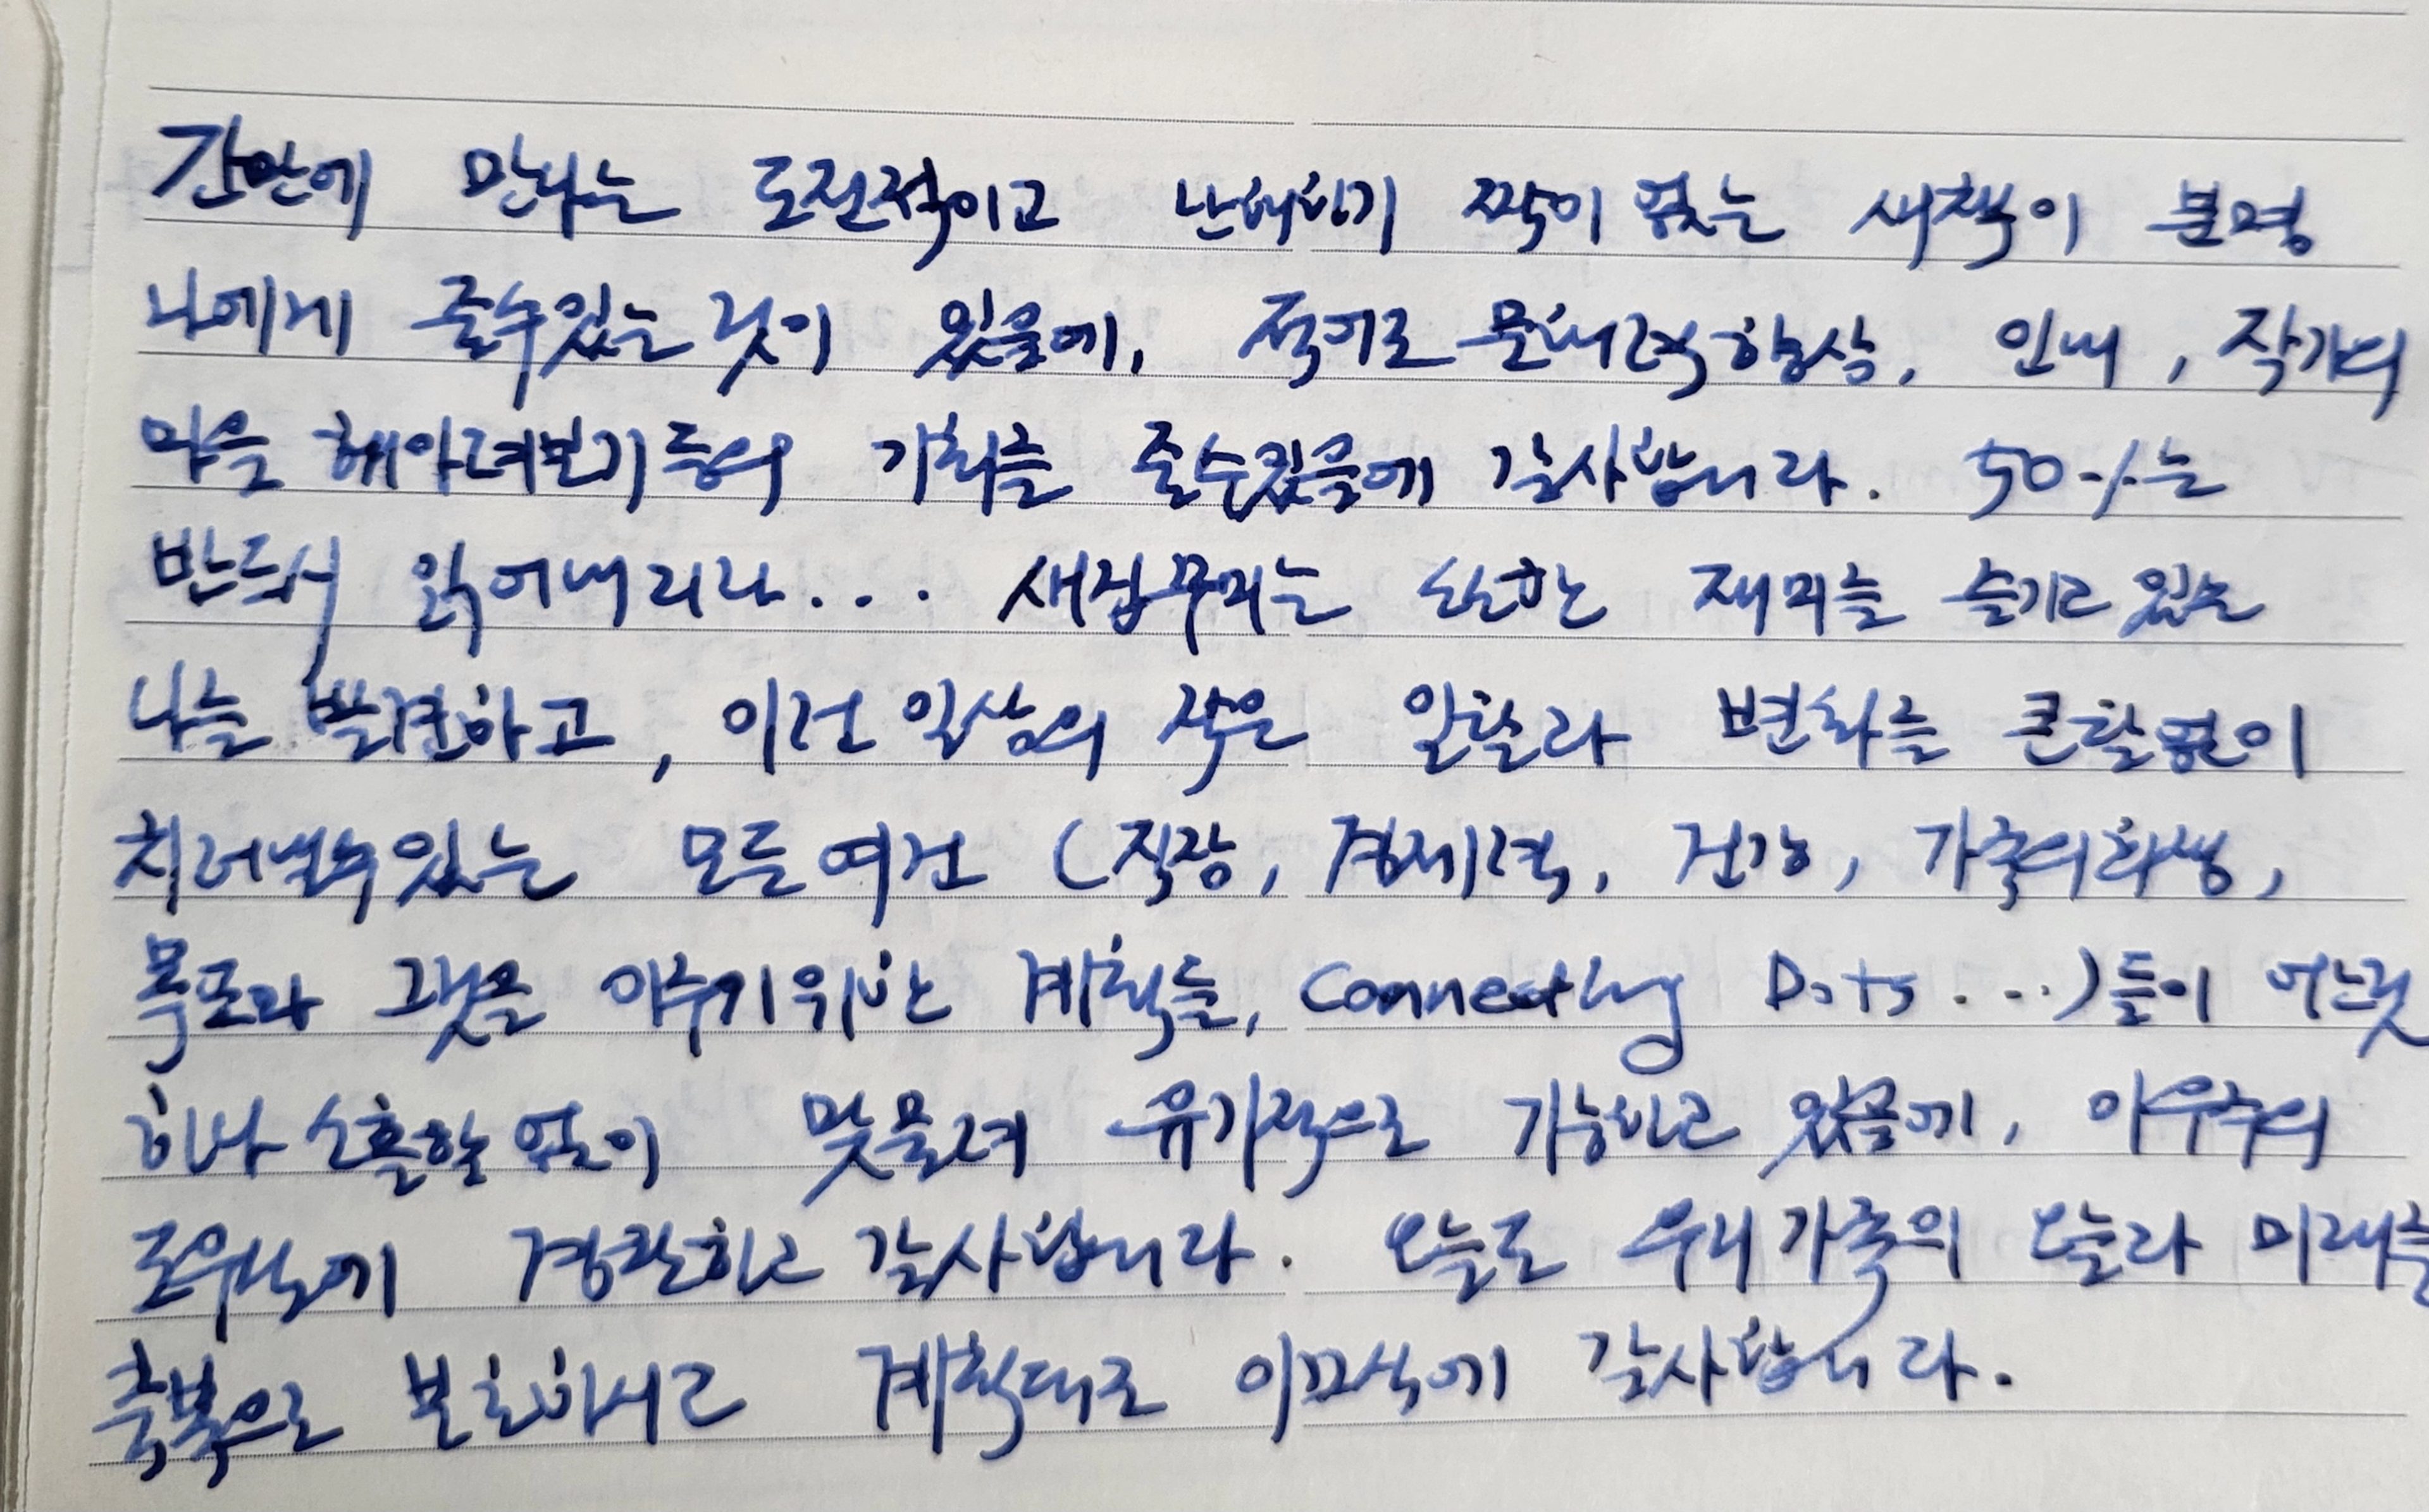 간만에 만나는 도전적이고 난해하기 짝이 없는 새책이 분명
나에게 줄수있는 것이 있음에, 적어도 문해력향상, 인내, 작가의
맘을 헤아려보기 등의 기회를 줄수있음에 감사합니다. 50%는
반드시 읽어내리라... 새집꾸미는 소소한 재미를 즐기고 있는
나를 발견하고, 이런 일상의 작은 일탈과 변화를 큰탈없이
치러낼수있는 모든여건 (직장, 경제력, 건강, 가족의희생,
목표와 그것을 이루기위한 계획들, Connecting Dots ...)들이 어느것
하나 소홀함없이 맞물려 유기적으로 기능하고 있음에, 이우주의
도우심에 경탄하고 감사합니다. 오늘도 우리가족의 오늘과 미래를
축복으로 보호하시고 계획대로 이끄심에 감사합니다.